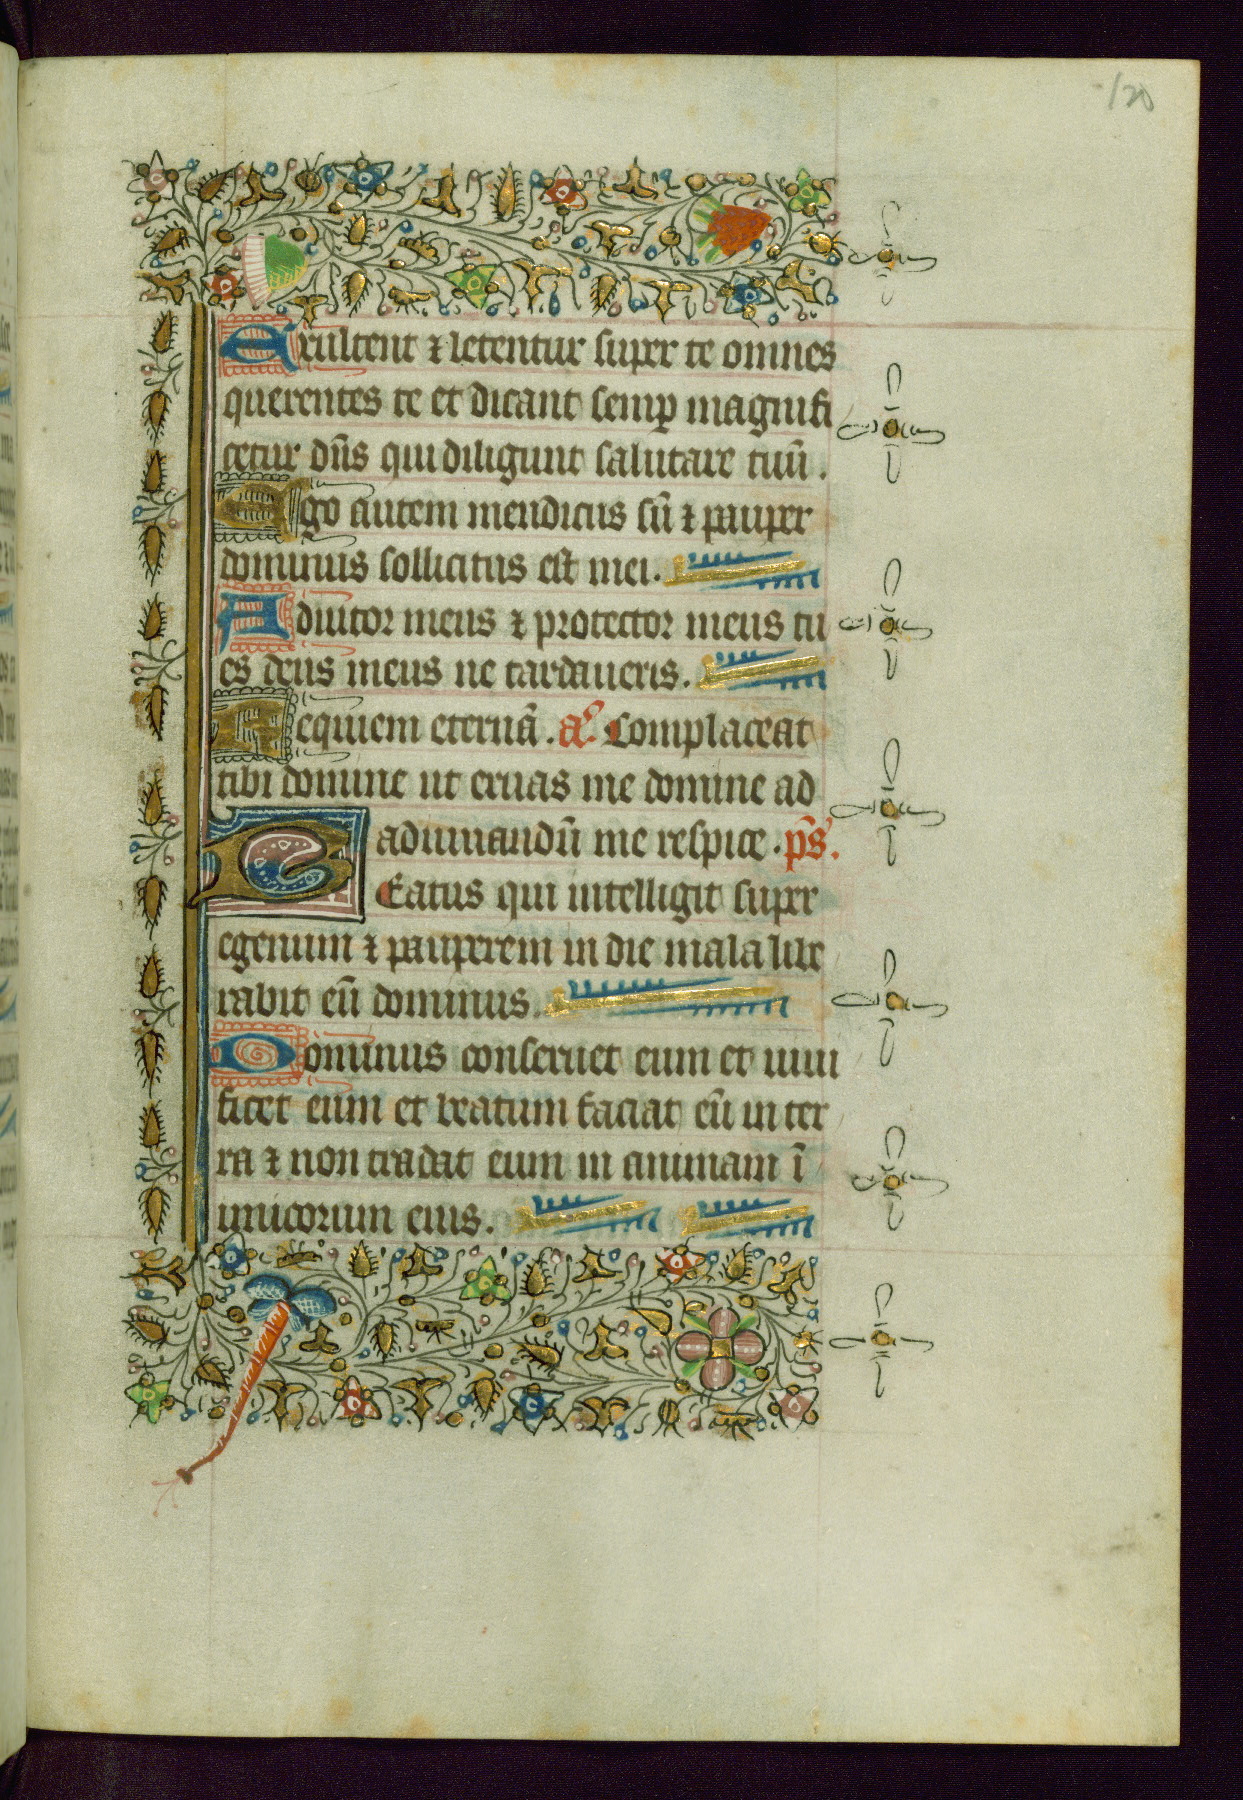 120
Exultent ⁊ letentur super te omnes
querentes te et dicant semꝑ magnifi
cetur dn̄s qui diligunt salutare tuū.
Ego autem mendicus sū ⁊ pauper
dominus sollicitus est mei.
Adiutor meus ⁊ protector meus tu
es deus meus ne tardaueris.
Requiem eternā. a͛. Complaceat
tibi domine ut eruas me domine ad
adiuuandū me respice. p̄s.
Eatus qui intelligit super
egenum ⁊ pauperem in die mala libe
rabit eū dominus.
Dominus conseruet eum et uiui
ficet eum et beatum faciat eū in ter
ra ⁊ non tradat eum in animam ī
inicorum eius.